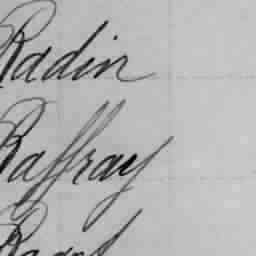 Radin
Raffray